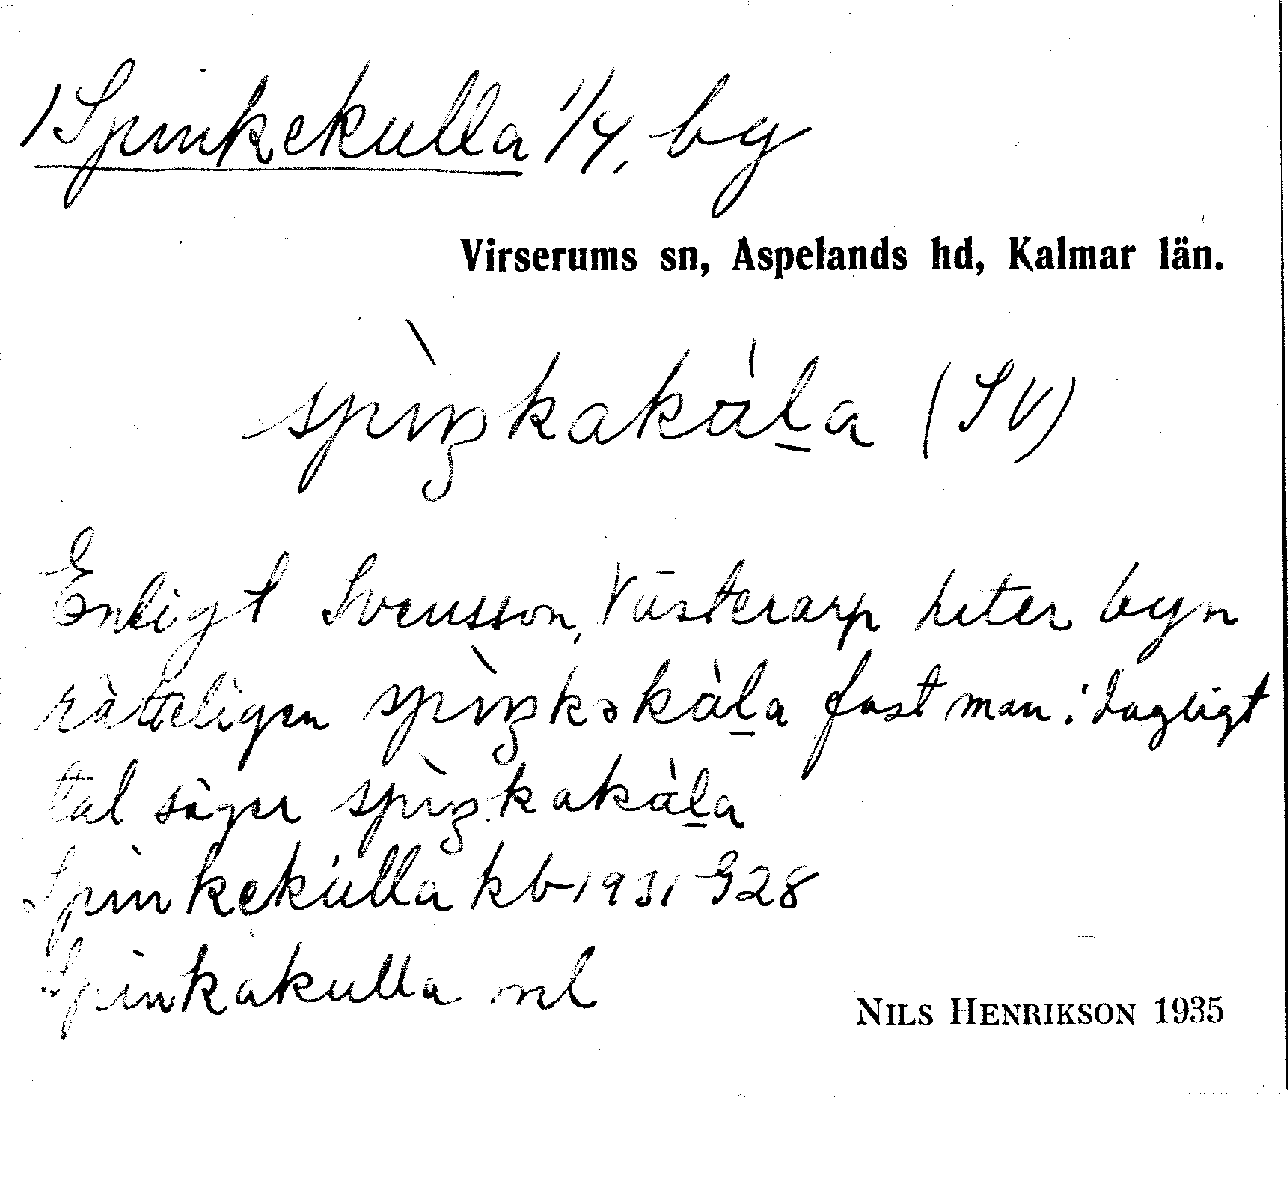 1 Spinkekulla 1/4, by
Virserums sn, Aspelands hd, Kalmar län.
spìŋkakàḻa (SV)
Enligt Svensson, Västerarp heter byn
rätteligen spìŋkəkàḻa fast man i dagligt
tal säger spìŋkakàḻa
Spinkekulla kb 1931 G28
Spinkakulla ml
NILS HENRIKSON 1935